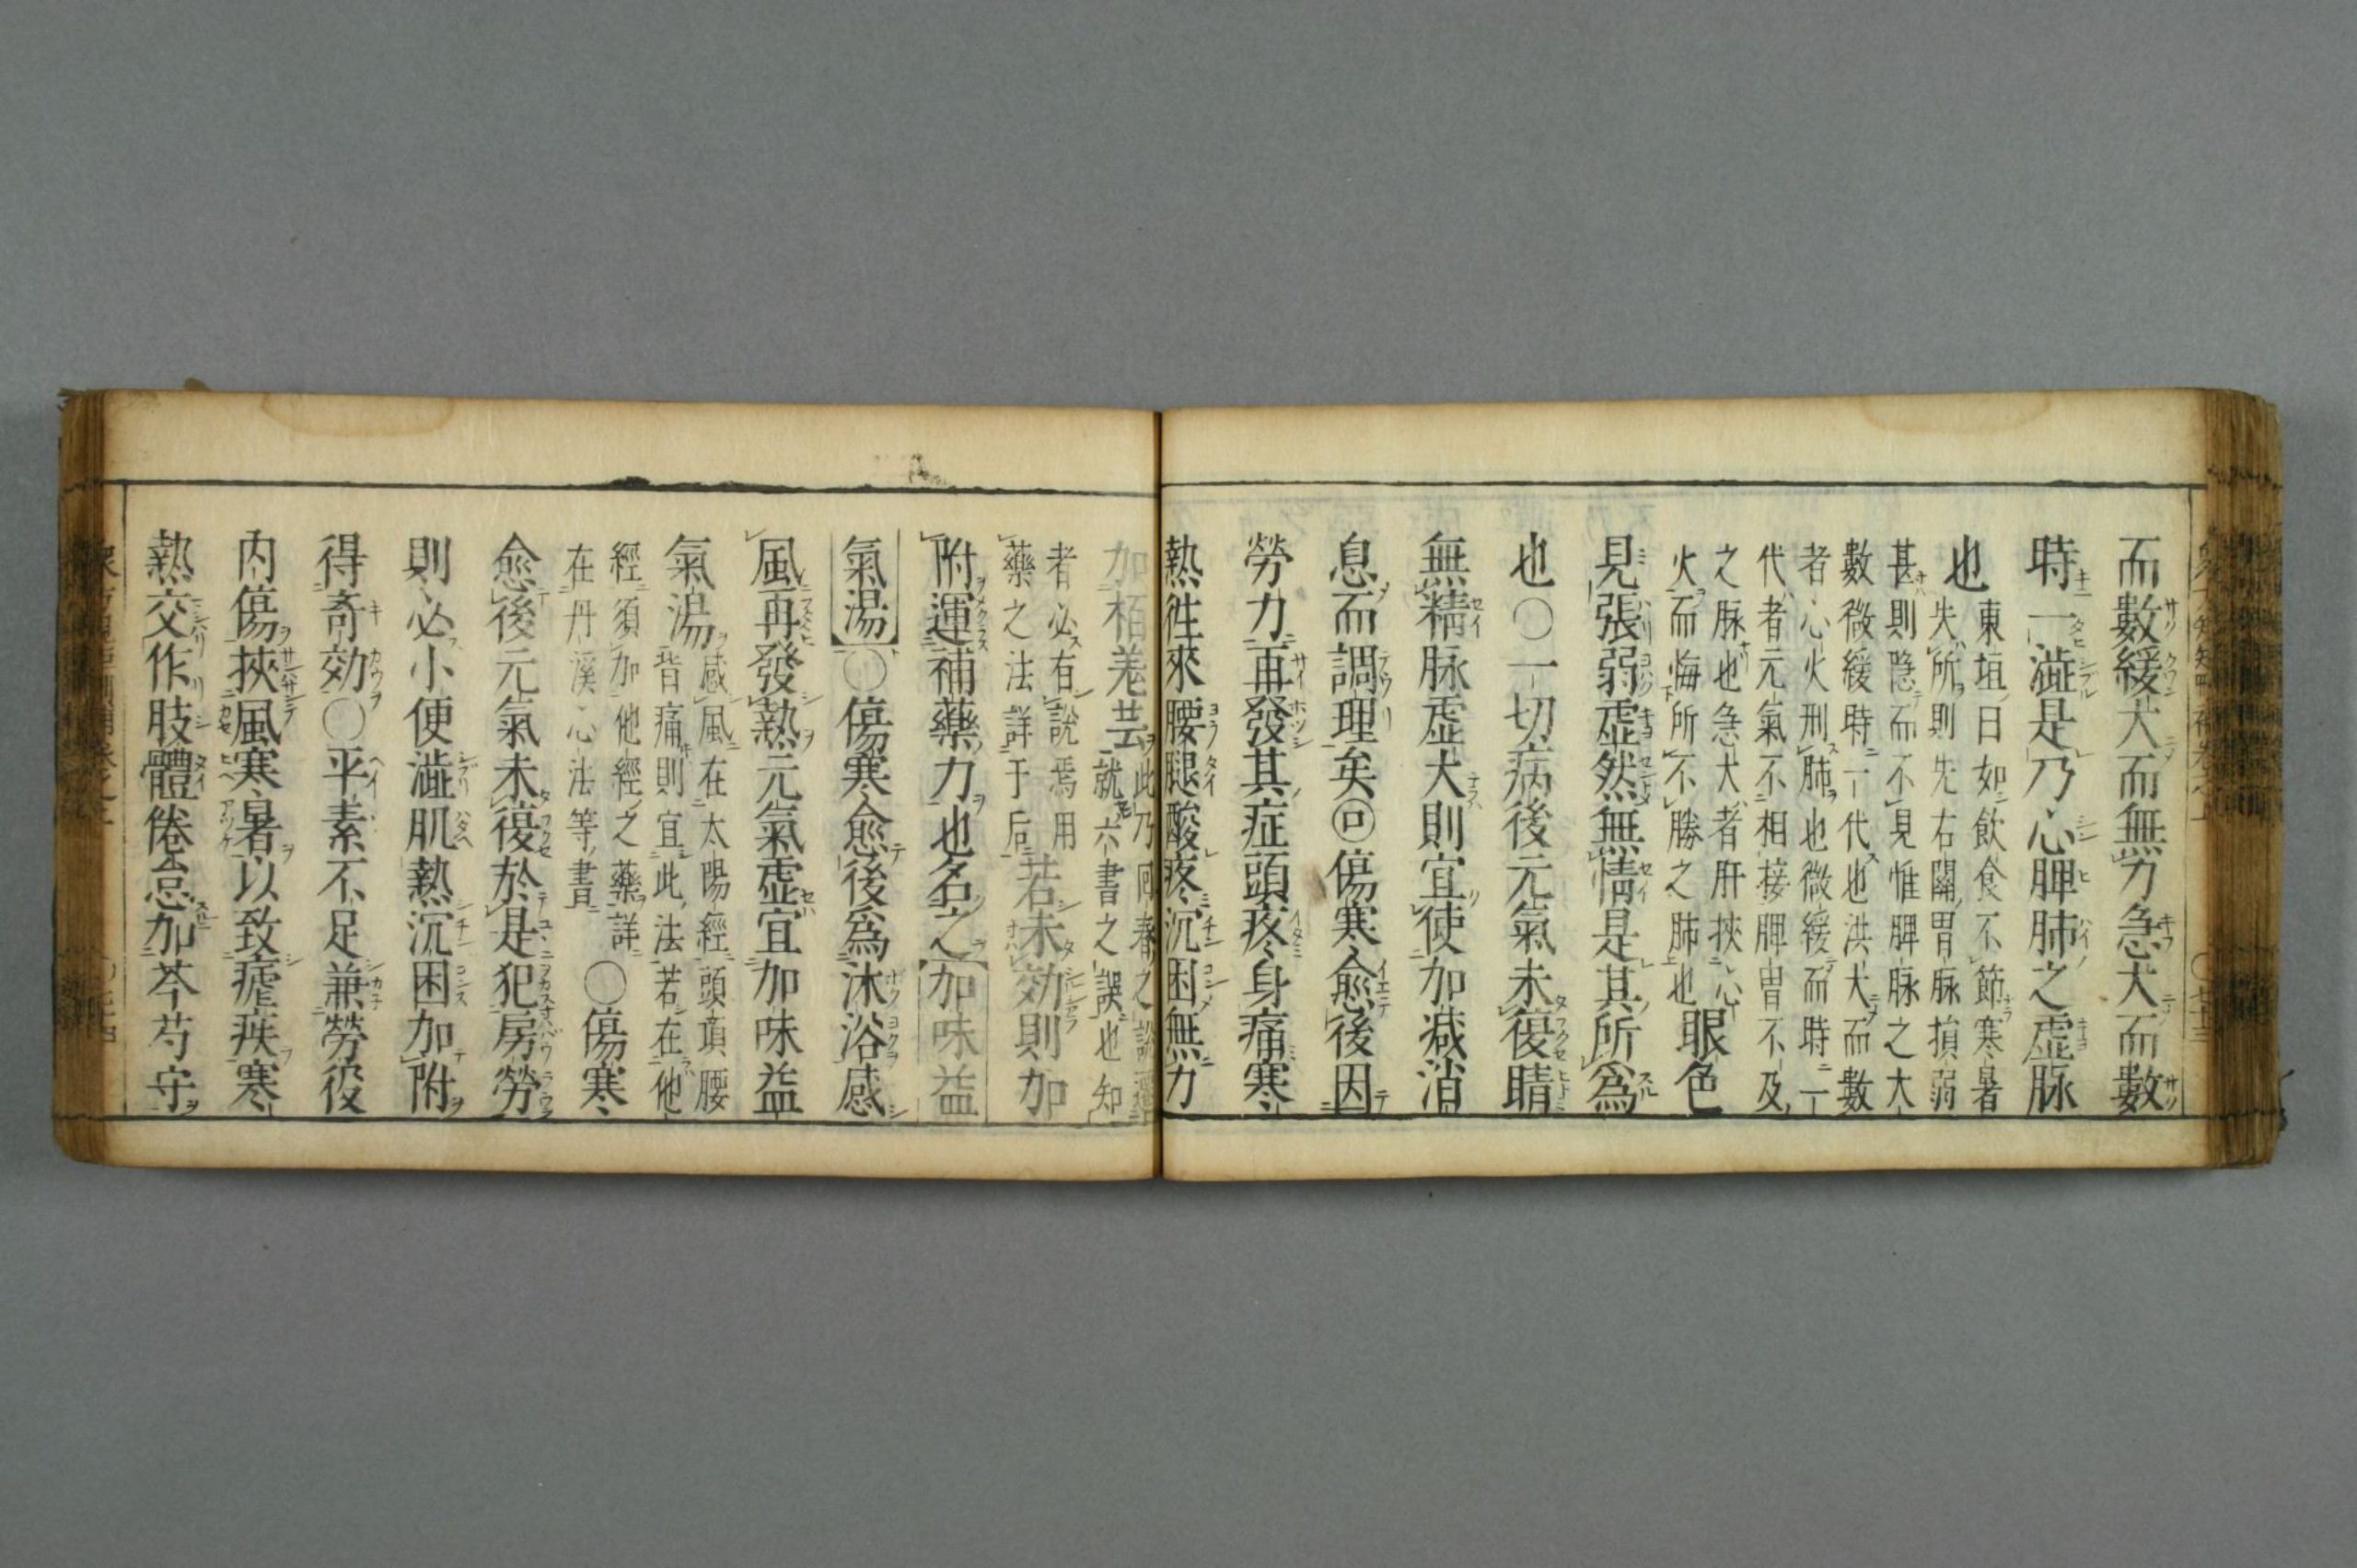 而數緩大而無力急大而數
時一澁是乃心脾肺之虛脉
也
東垣曰如飲食不節寒暑
失所則先右關胃脉損弱
甚則隱而不見惟脾脉之大
數微緩時一代也洪大而數
者心火刑肺也微緩而時一
代者元氣不相接脾胃不及
之脉也急大者肝挾心
火而悔所不勝之肺也
眼色
見張弱虛然無情是其所爲
也○一切病後元氣未復睛
無精脉虛大則宜使加減消
息而調理矣回傷寒愈後因
勞力再發其症頭疼身痛寒
熱徃來腰腿酸疼沉困無力
加栢姜芸
此乃回春之說
就六書之誤也知
者必有說焉用
藥之法詳于后
若未効則加
附運補藥力也名之加味益
氣湯○傷寒愈後爲沐浴感
風再發熱元氣虛宜加味益
氣湯
感風在太陽經頭項腰
皆痛則宜此法若在他
經須加他經之藥詳
在丹溪心法等書
○傷寒
愈後元氣未復於是犯房勞
則必小便澁肌熱沉困加附
得奇効○平素不足兼勞役
内傷挾風寒暑以致瘧疾寒
熱交作肢體倦怠加芩芍守